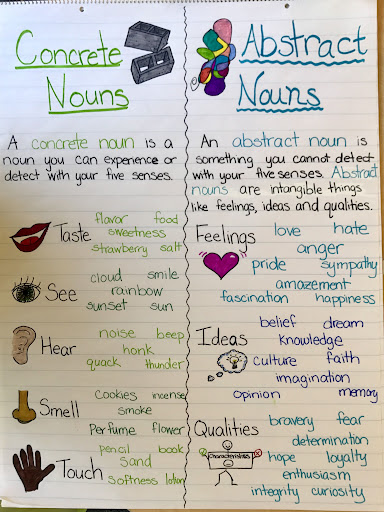 Concrete
Nouns
A concrete noun is a
noun you can experience or
detect with your five senses.
Taste
flavor food
sweetness
strawberry salt
See
cloud smile
rainbow
sunset sun
Hear
noise beep
honk
quack thunder
Smell
cookies incense
smoke
perfume flower
Touch
pencil book
sand
softness lotion
Abstract
Nouns
An abstract noun is
something you cannot detect
with your five senses. Abstract
nouns are intangible things
like feelings, ideas and qualities.
Feelings
love hate
anger
pride sympathy
amazement
fascination happiness
Ideas
belief dream
knowledge
culture faith
imagination
opinion memory
Qualities
Characteristics
bravery fear
determination
hope loyalty
enthusiasm
integrity curiosity